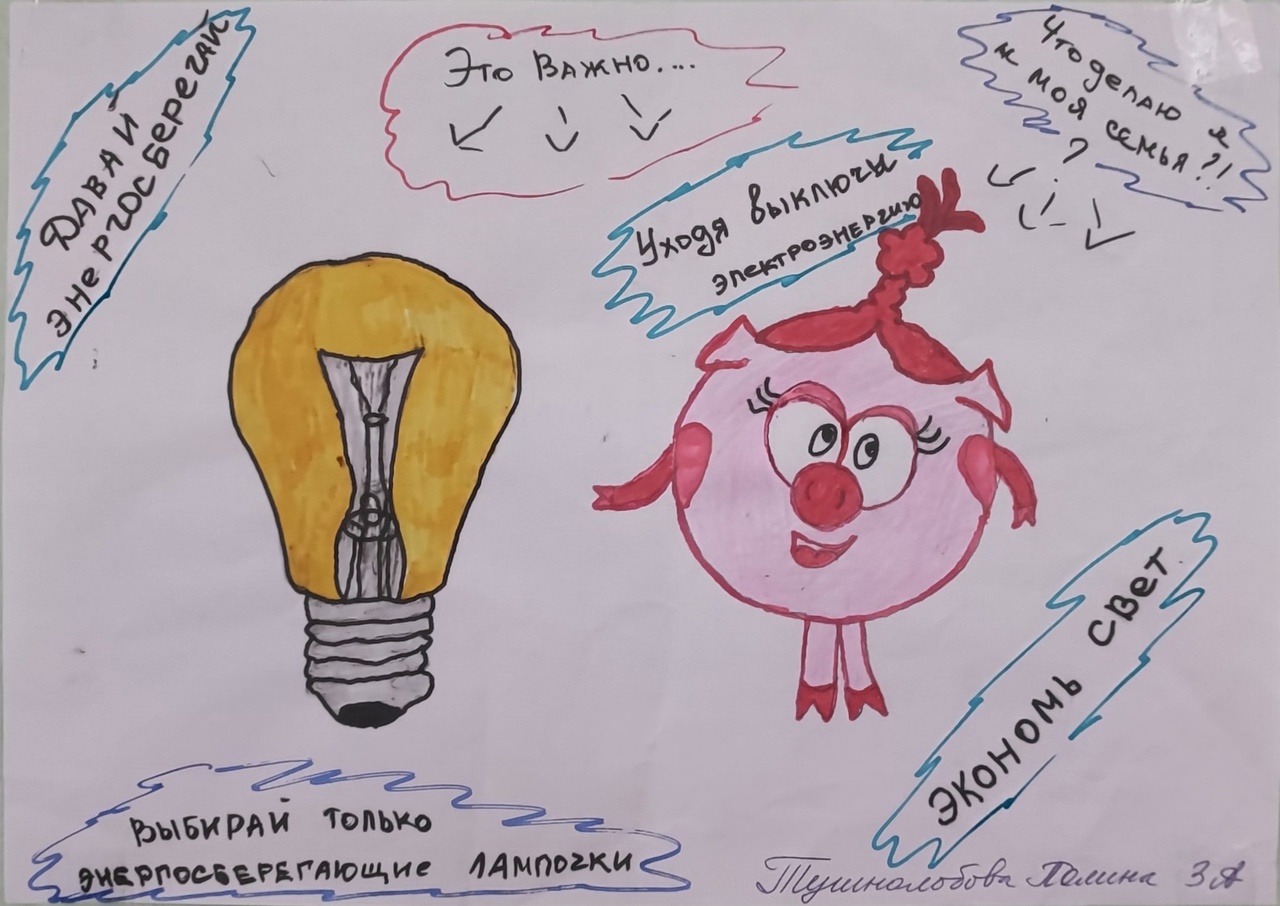 ДАВАЙ
ЭНЕРГОСБЕРЕГАЙ
Это ВАЖНО....
Что делаю я
и моя семья?!!
?
Уходя выключы
электроэнергию
ЭКОНОМЬ СВЕТ
ВЫБИРАЙ ТОЛЬКО
ЭНЕРГОСБЕРЕГАЮЩИЕ ЛАМПОЧКИ
Тушналобова Полина 3А